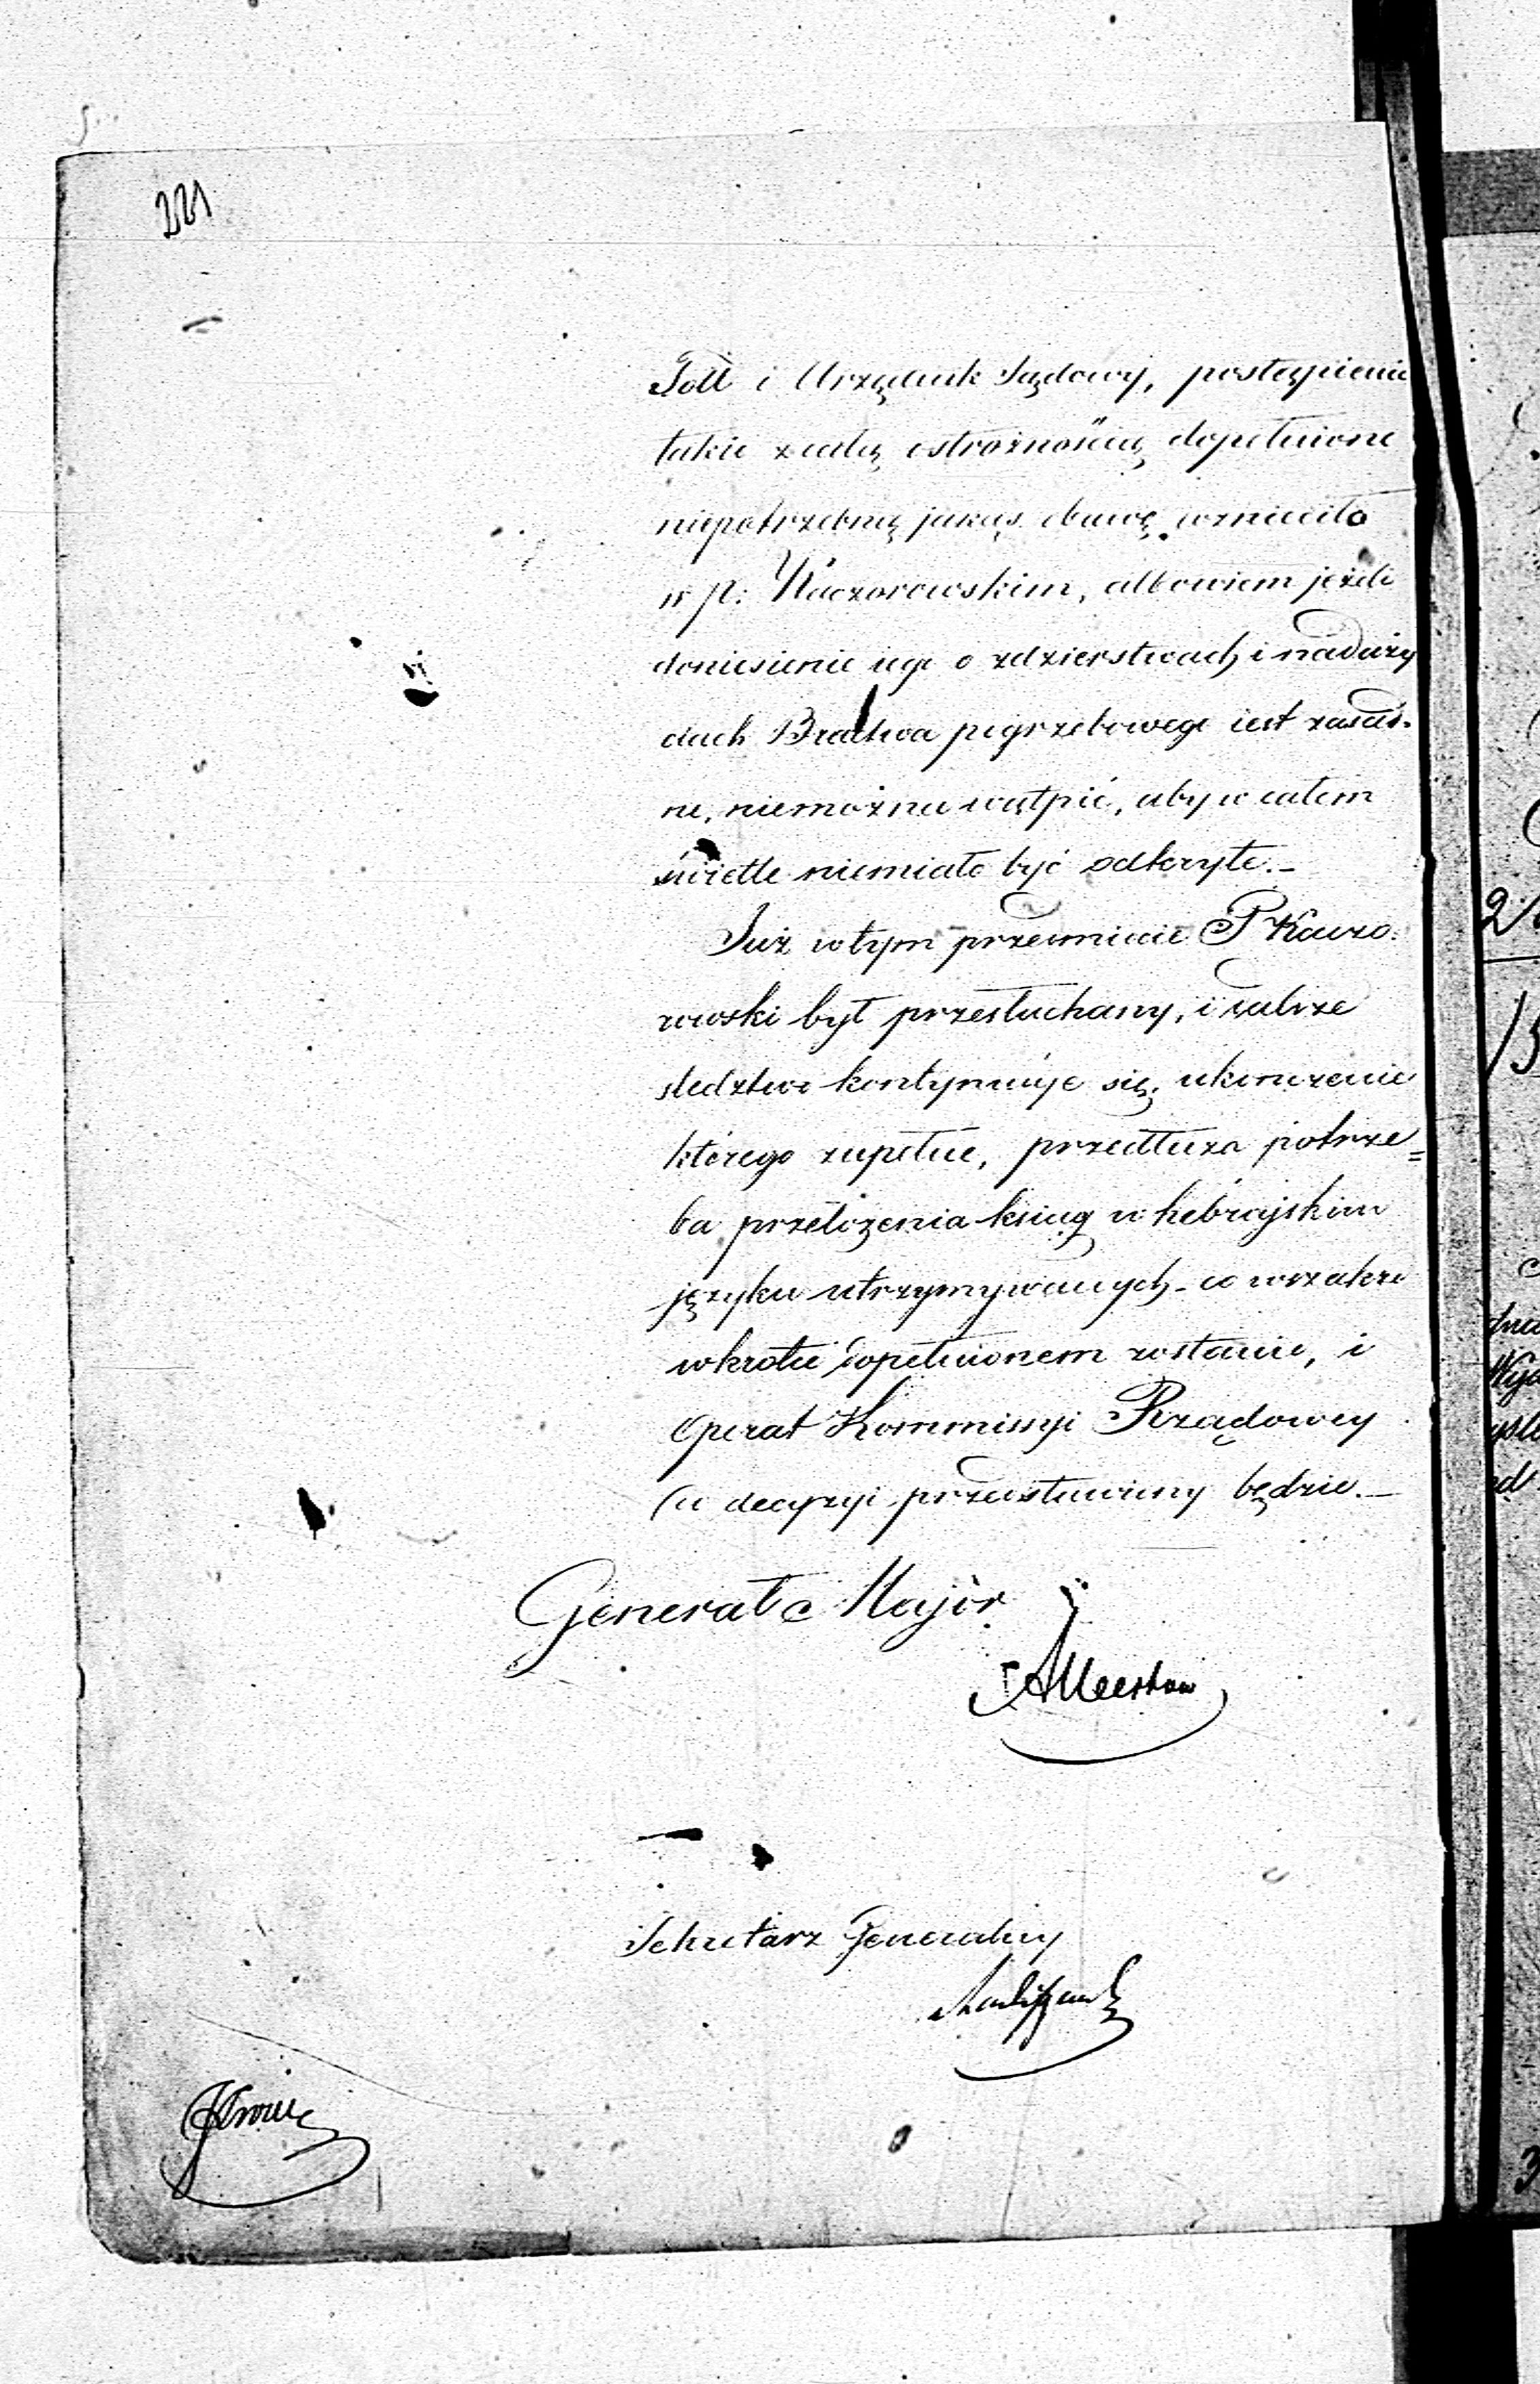 221
i Urzędnik Sądowy, postąpienie
takie z całą ostrożnością dopełnione
niepotrzebną jakąś obawę wznieciło
w P: Kaczorowskim, albowiem jeżeli
doniesienie iego o zdzierstwach i naduży
ciach Bractwa pogrzebowego iest zasad-
ne, niemożna wątpić, aby w całem
świetle niemiało być odkryte.-
Już w tym przedmiocie P Kaczo-
rowski był przesłuchany, i dalsze
śledztwo kontynuuje się, ukończenie
którego zupełne, przedłuża potrze=
ba przełożenia ksiąg w hebrajskim
języku utrzymywanych - co wszakże
wkrótce dopełnionem zostanie, i
Operat Kommissyi Rządowey
do decyzyi przedstawiony będzie.-
Generał Major
Sekretarz Generalny